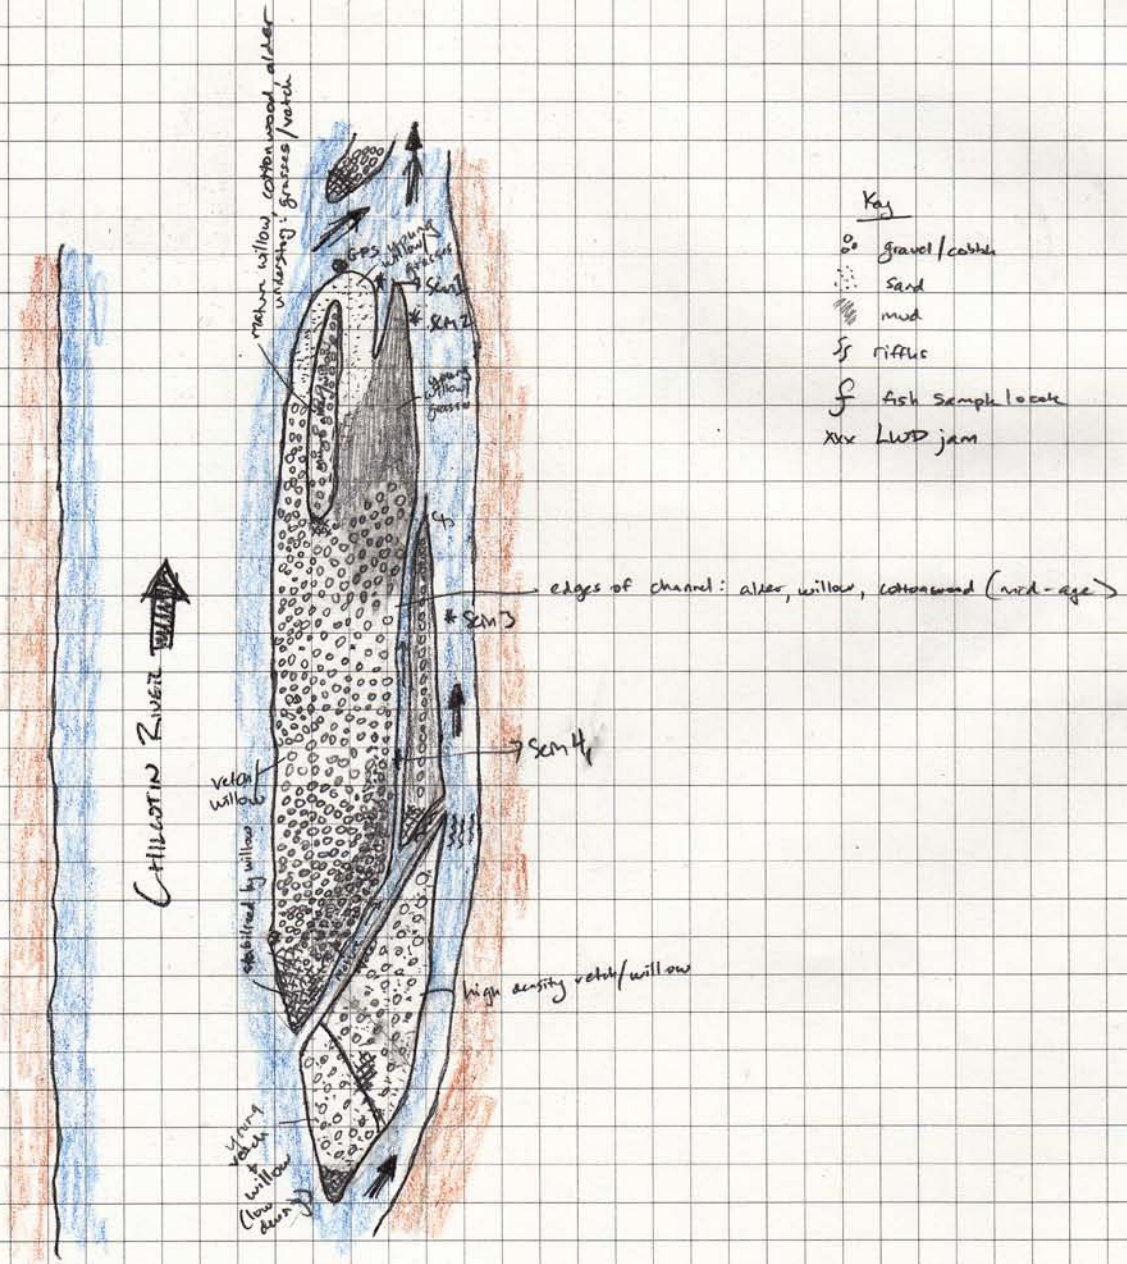 mature willow, cottonwood, alder
understory: grasses/vetch
GPS
young
willow/
grasses
Sem 1
Sem 2
young
willow/
grasses
Key
gravel/cobble
sand
mud
riffles
f fish sample locale
xxx LWD jam
edges of channel: alder, willow, cottonwood (mid-age)
* Sem 3
Sem 4
CHILCOTIN RIVER
vetch/
willow
stabilized by willow
high density vetch/willow
young
vetch
+
willow
(low
density)